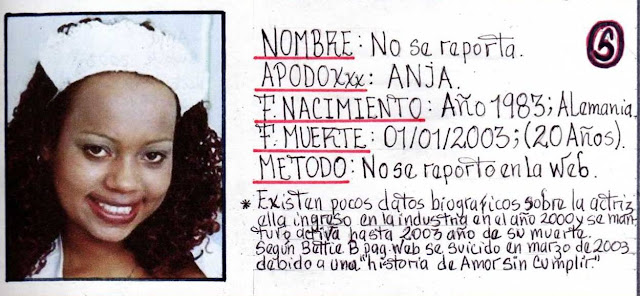 NOMBRE: No se reporta.
5
APODOxxx: ANJA.
F. NACIMIENTO: Año 1983; Alemania.
F. MUERTE: 01/01/2003; (20 Años).
METODO: No se reporto en la Web.
* Existen pocos datos biograficos sobre la actriz
ella ingreso en la industria en el año 2000 y se man-
tuvo activa hasta 2003 año de su muerte.
Según Battie B pag. Web se suicido en marzo de 2003
debido a una "historia de Amor Sin Cumplir."